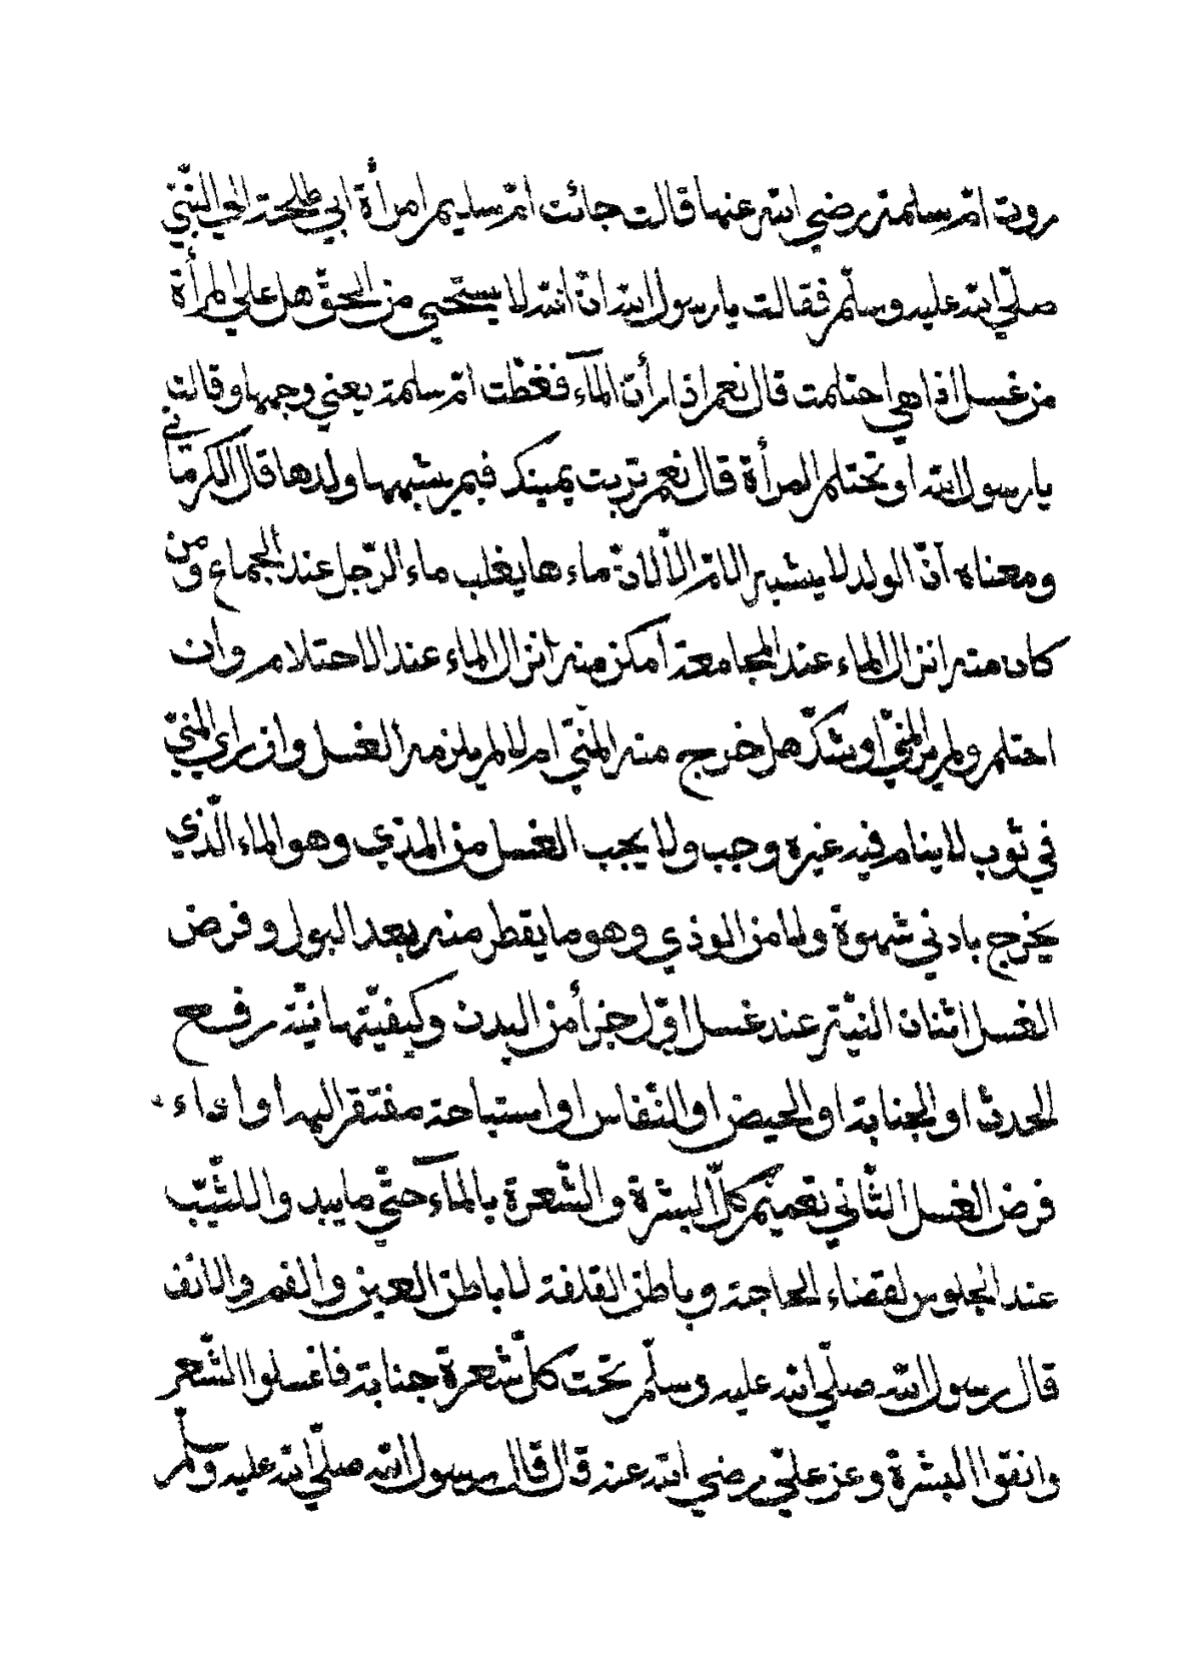 روت امّ سلمة رضي الله عنها قالت جائت امّ سليم امرأة ابي طلحة الى النّبيّ
صلّى الله عليه وسلّم فقالت يا رسول الله انّ الله لا يستحيي من الحقّ هل على المرأة
من غسل اذا هي احتلمت قال نعم اذا رأت المآء فغطّت امّ سلمة يعني وجهها وقالت
يا رسول الله أو تحتلم المرأة قال نعم تربت يمينك فبم يشبهها ولدها قال الكرماني
ومعناه انّ الولد لا يشبه الامّ الّا لانّ ماءها يغلب ماء الرّجل عند الجماع ومن
كان منه انزال الماء عند المجامعة امكن منه انزال الماء عند الاحتلام وان
احتلم ولم ير المنيّ او شكّ هل خرج منه المنيّ ام لا لم يلزمه الغسل وان رأى المنيّ
في ثوب لا ينام فيه غيره وجب ولا يجب الغسل من المذي وهو الماء الّذي
يخرج بادنى شهوة ولا من الوذي وهو ما يقطر منه بعد البول وفرض
الغسل اثنان النيّة عند غسل اوّل جزأ من البدن وكيفيّتها نيّة رفع
الحدث او الجنابة او الحيض او النّفاس او استباحة مفتقر اليه او اداء
فرض الغسل الثّاني تعميم كلّ البشرة والشّعرة بالمآء حتّى ما يبدوا للثّيّب
عند الجلوس لقضاء الحاجة وباطن القلفة لا باطن العين والفم والانف
قال رسول الله صلّى الله عليه وسلّم تحت كلّ شعرة جنابة فاغسلوا الشّعر
وانقوا البشرة وعن عليّ رضي الله عنه قال قال رسول الله صلّى الله عليه وسلّم